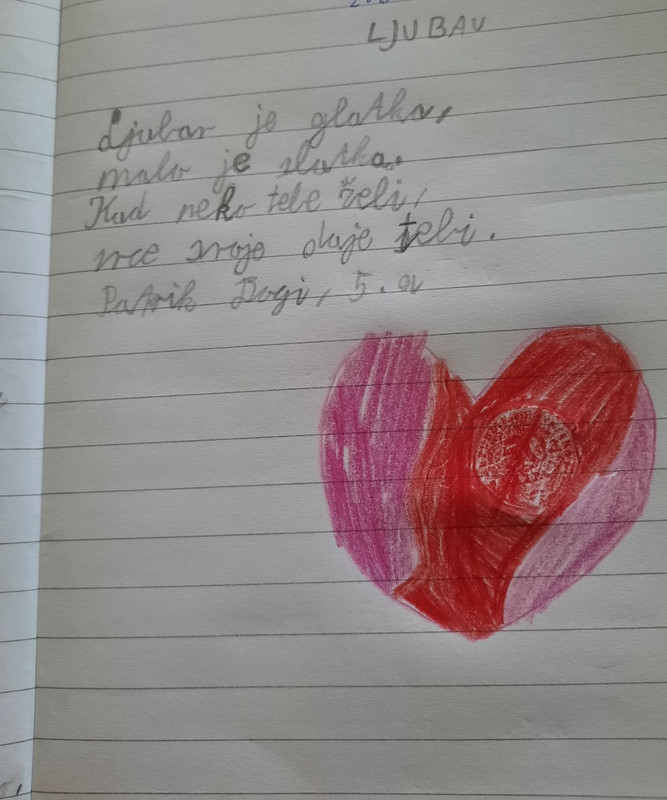 LJUBAV
Ljubav je glatka,
malo je slatka.
Kad neko tebe želi,
srce svoje daje tebi.
Patrik Dogi, 5. a